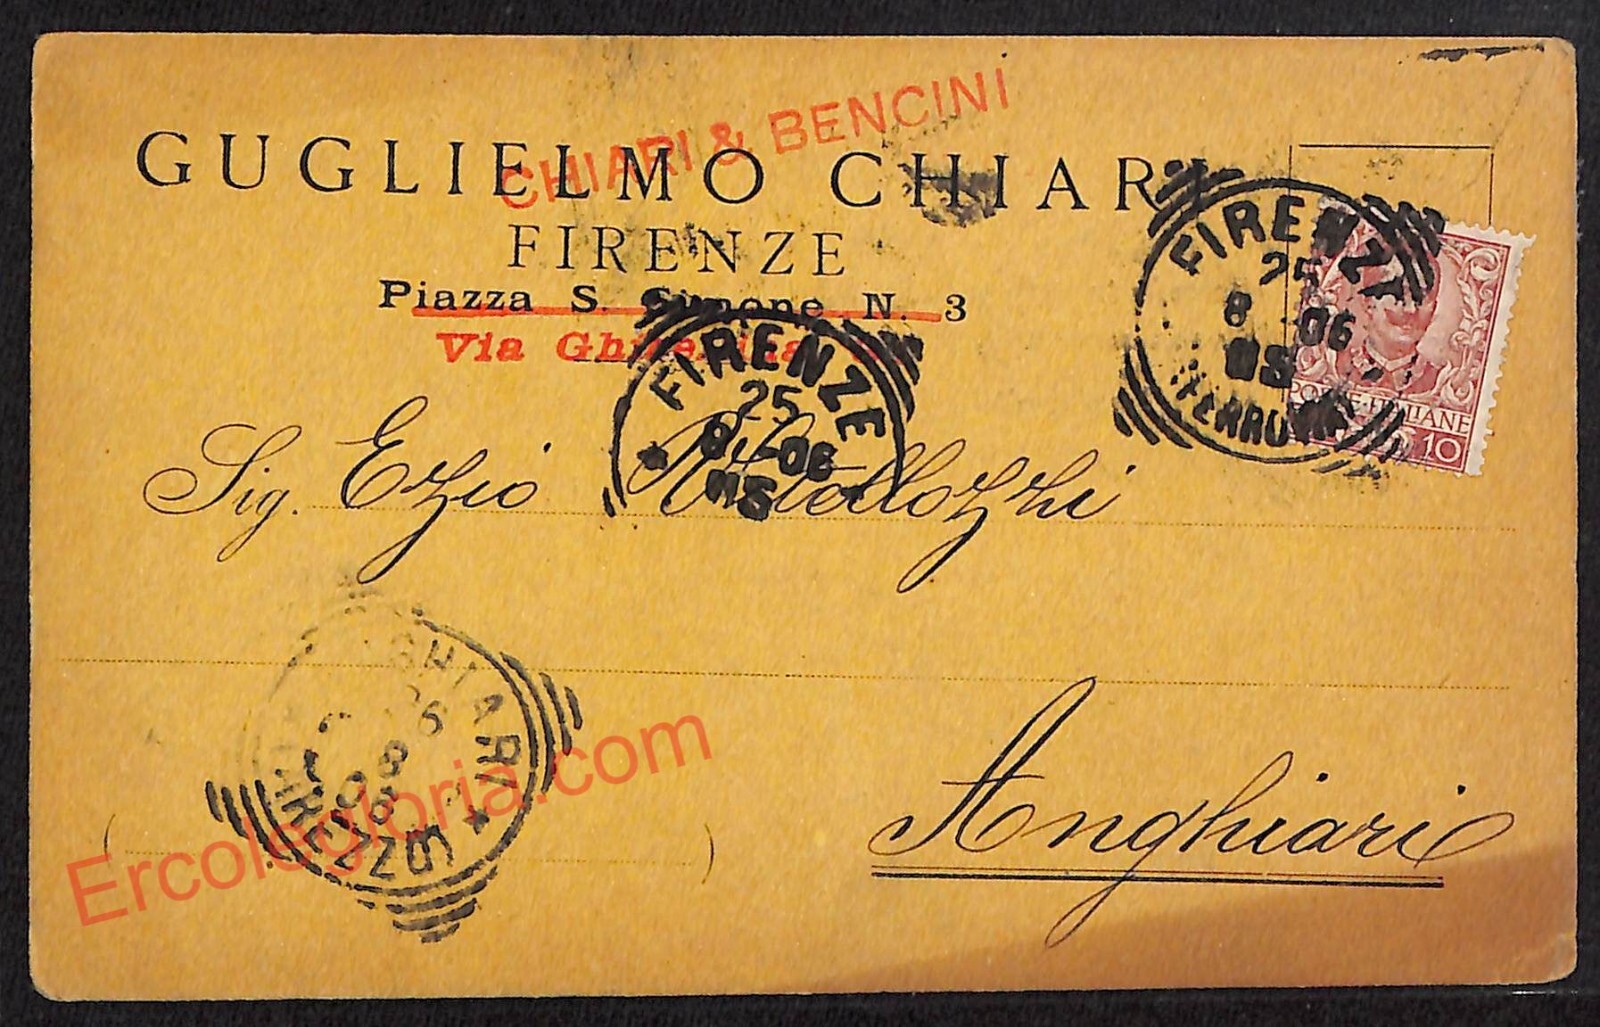 CHIARI & BENCINI
GUGLIELMO CHIARI
FIRENZE
Piazza S. Simone N. 3
Via Ghibellina
FIRENZE
25
8 06
FERROVIA
POSTE ITALIANE
10
FIRENZE
25
8 06
Sig. Ezio
Anghiari
ANGHIARI
26
8
06
AREZZO
Ercolegloria.com